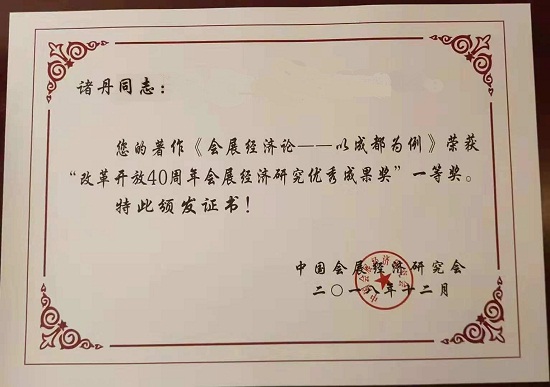 诸丹同志：
您的著作《会展经济论——以成都为例》荣获
“改革开放40周年会展经济研究优秀成果奖”一等奖。
特此颁发证书！
中国会展经济研究会
二〇一八年十二月